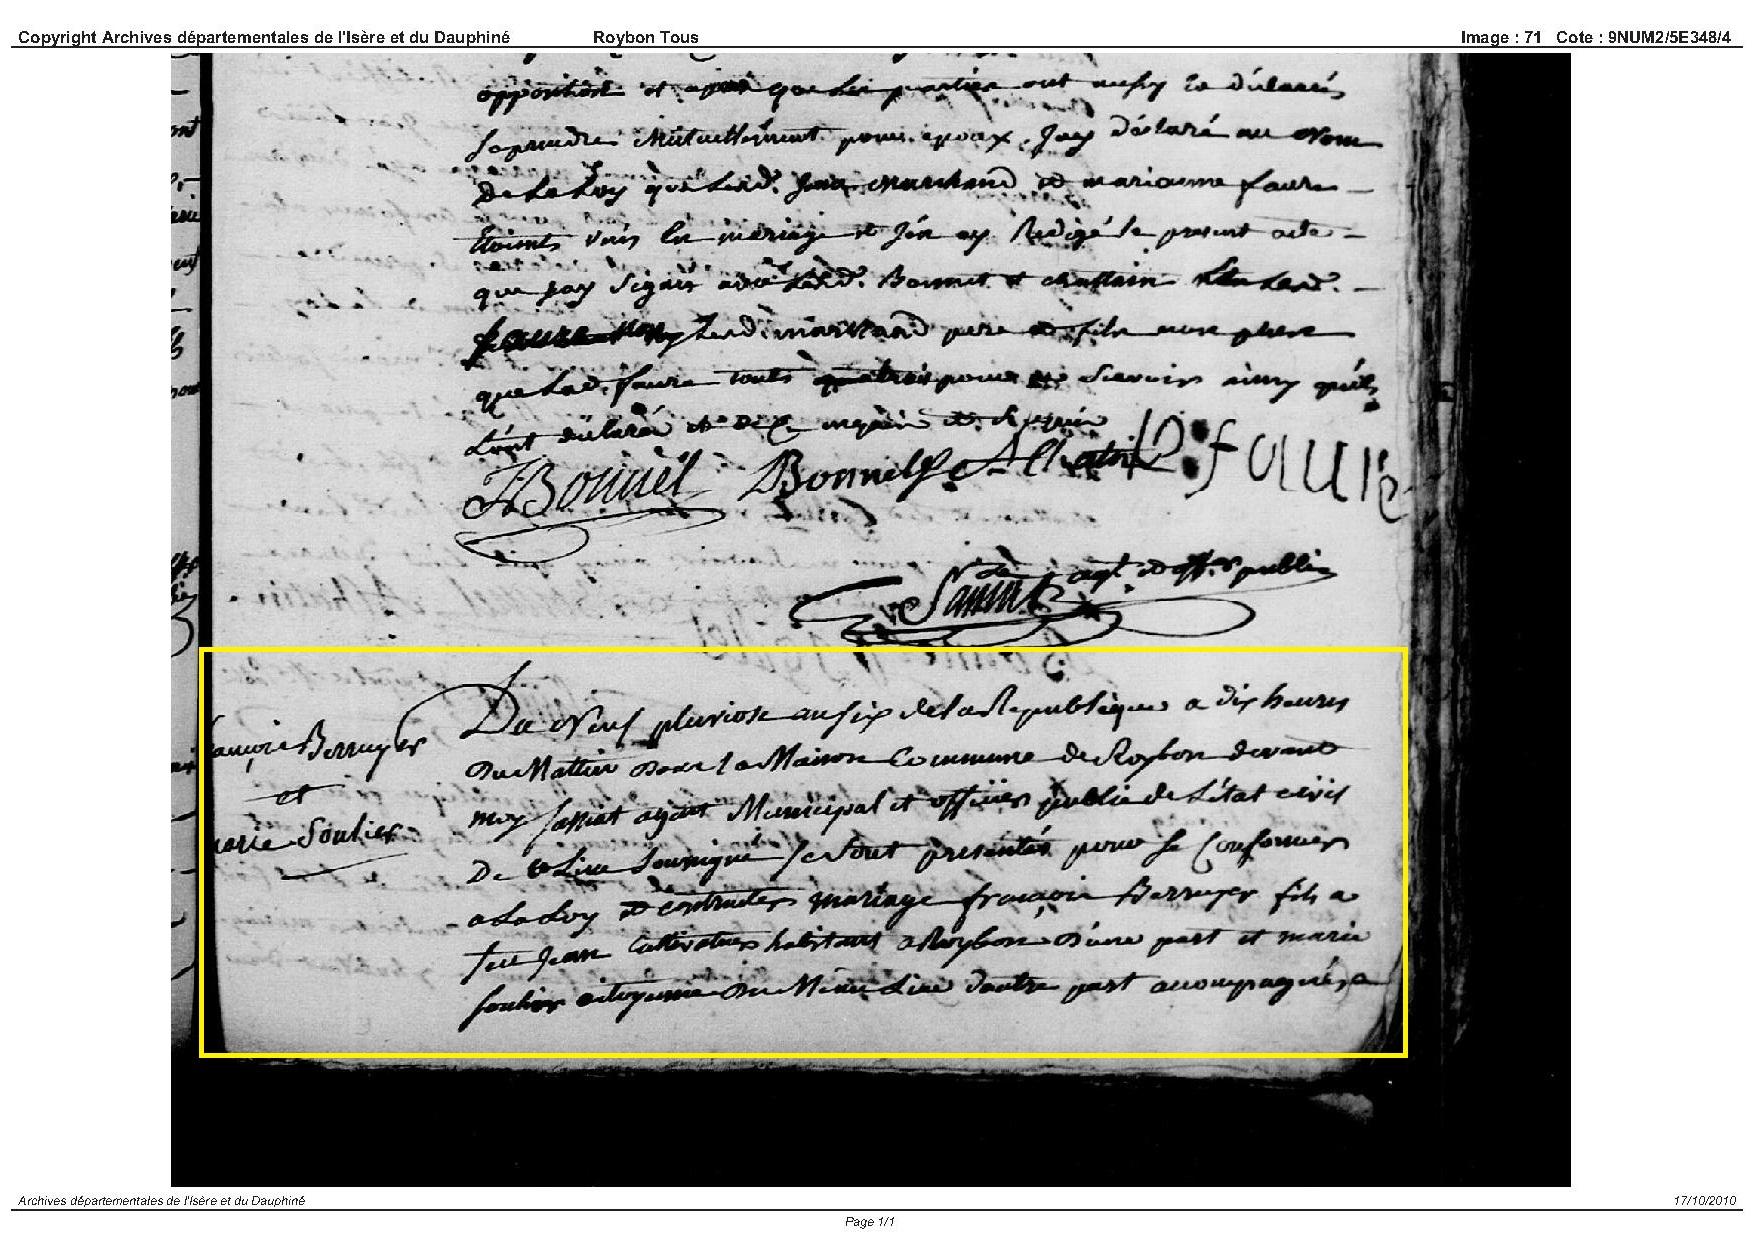 Copyright Archives départementales de l'Isère et du Dauphiné Roybon Tous Image : 71 Cote : 9NUM2/5E348/4
opposition et après que les parties ont aussy déclarés
se prendre Mutuellement pour epoux, Jay déclaré au Nom
De La Loy que Led. Marchand et marianne faure
étoints unis En mariage et J'én ay Redigé le present acte
que jay Signés avec Led. Bonnet et chattain
Led. marchand pere et fils non plus
que Lad. faure pour ne Scavoir ainsy quils
L'ont déclaré et De Ce enquis et Requis
JBonnet Bonnet P. faure
agt. et off.r public
Du Neuf pluviose an six de la Republique a dix heures
Du Mattin Dans la Maison Commune de Roybon devant
moy agent Municipal et officier public de L'état civil
De ce Lieu Soussigné se sont présentés pour se Conformer
a La Loy et contracter mariage françois Berruyer fils a
feu Jean Cultivateur habitant a Roybon D'une part et marie
soulier citoyenne Du Même Lieu d'autre part accompagnés a
ançois Berruyer
et
arie Soulier
Archives départementales de l'Isère et du Dauphiné 17/10/2010
Page 1/1